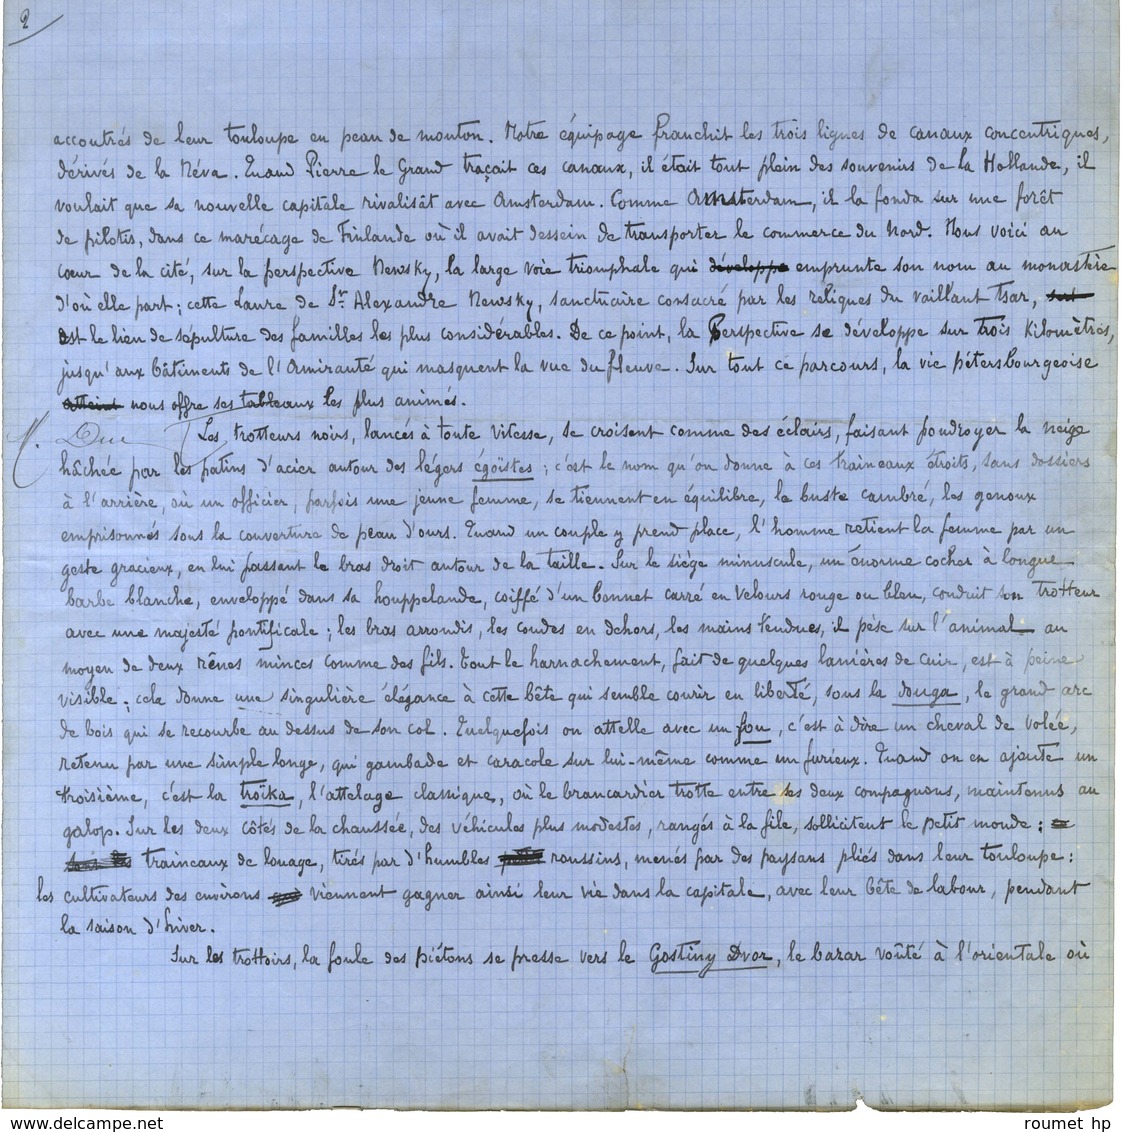 2
accoutrés de leur touloupe en peau de mouton. Notre équipage franchit les trois lignes de canaux concentriques,
dérivés de la Néva. Quand Pierre le Grand traçait ces canaux, il était tout plein des souvenirs de la Hollande, il
voulait que sa nouvelle capitale rivalisât avec Amsterdam. Comme Amsterdam, il la fonda sur une forêt
de pilotis, dans ce marécage de Finlande où il avait dessein de transporter le commerce du Nord. Nous voici au
cœur de la cité, sur la perspective Newsky, la large voie triomphale qui développe emprunte son nom au monastère
d'où elle part ; cette Laure de St Alexandre Newsky, sanctuaire consacré par les reliques du vaillant Tsar, sert
est le lieu de sépulture des familles les plus considérables. De ce point, la Perspective se développe sur trois kilomètres,
jusqu'aux bâtiments de l'Amirauté qui masquent la vue du fleuve. Sur tout ce parcours, la vie pétersbourgeoise
atteint nous offre ses tableaux les plus animés.
Les trotteurs noirs, lancés à toute vitesse, se croisent comme des éclairs, faisant poudroyer la neige
hâchée par les patins d'acier autour des légers égoïstes ; c'est le nom qu'on donne à ces traineaux étroits, sans dossiers
à l'arrière, où un officier, parfois une jeune femme, se tiennent en équilibre, la buste cambré, les genoux
emprisonnés sous la couverture de peau d'ours. Quand un couple y prend place, l'homme retient la femme par un
geste gracieux, en lui passant le bras droit autour de la taille. Sur le siège minuscule, un énorme cocher à longue
barbe blanche, enveloppé dans sa houppelande, coiffé d'un bonnet carré en velours rouge ou bleu, conduit son trotteur
avec une majesté pontificale ; les bras arrondis, les coudes en dehors, les mains tendues, il pèse sur l'animal au
moyen de deux rênes minces comme des fils. Tout le harnachement, fait de quelques lanières de cuir, est à peine
visible ; cela donne une singulière élégance à cette bête qui semble courir en liberté, sous la douga, le grand arc
de bois qui se recourbe au dessus de son col. Quelquefois on attelle avec un fou, c'est à dire un cheval de volée,
retenu par une simple longe, qui gambade et caracole sur lui-même comme un furieux. Quand on en ajoute un
troisième, c'est la troïka, l'attelage classique, où le brancardier trotte entre ses deux compagnons, maintenus au
galop. Sur les deux côtés de la chaussée, des véhicules plus modestes, rangés à la file, sollicitent le petit monde :
traineaux de louage, tirés par d'humbles roussins, menés par des paysans pliés dans leur touloupe :
les cultivateurs des environs viennent gagner ainsi leur vie dans la capitale, avec leur bête de labour, pendant
la saison d'hiver.
Sur les trottoirs, la foule des piétons se presse vers le Gostiny Dvor, le bazar voûté à l'orientale où
roumet hp